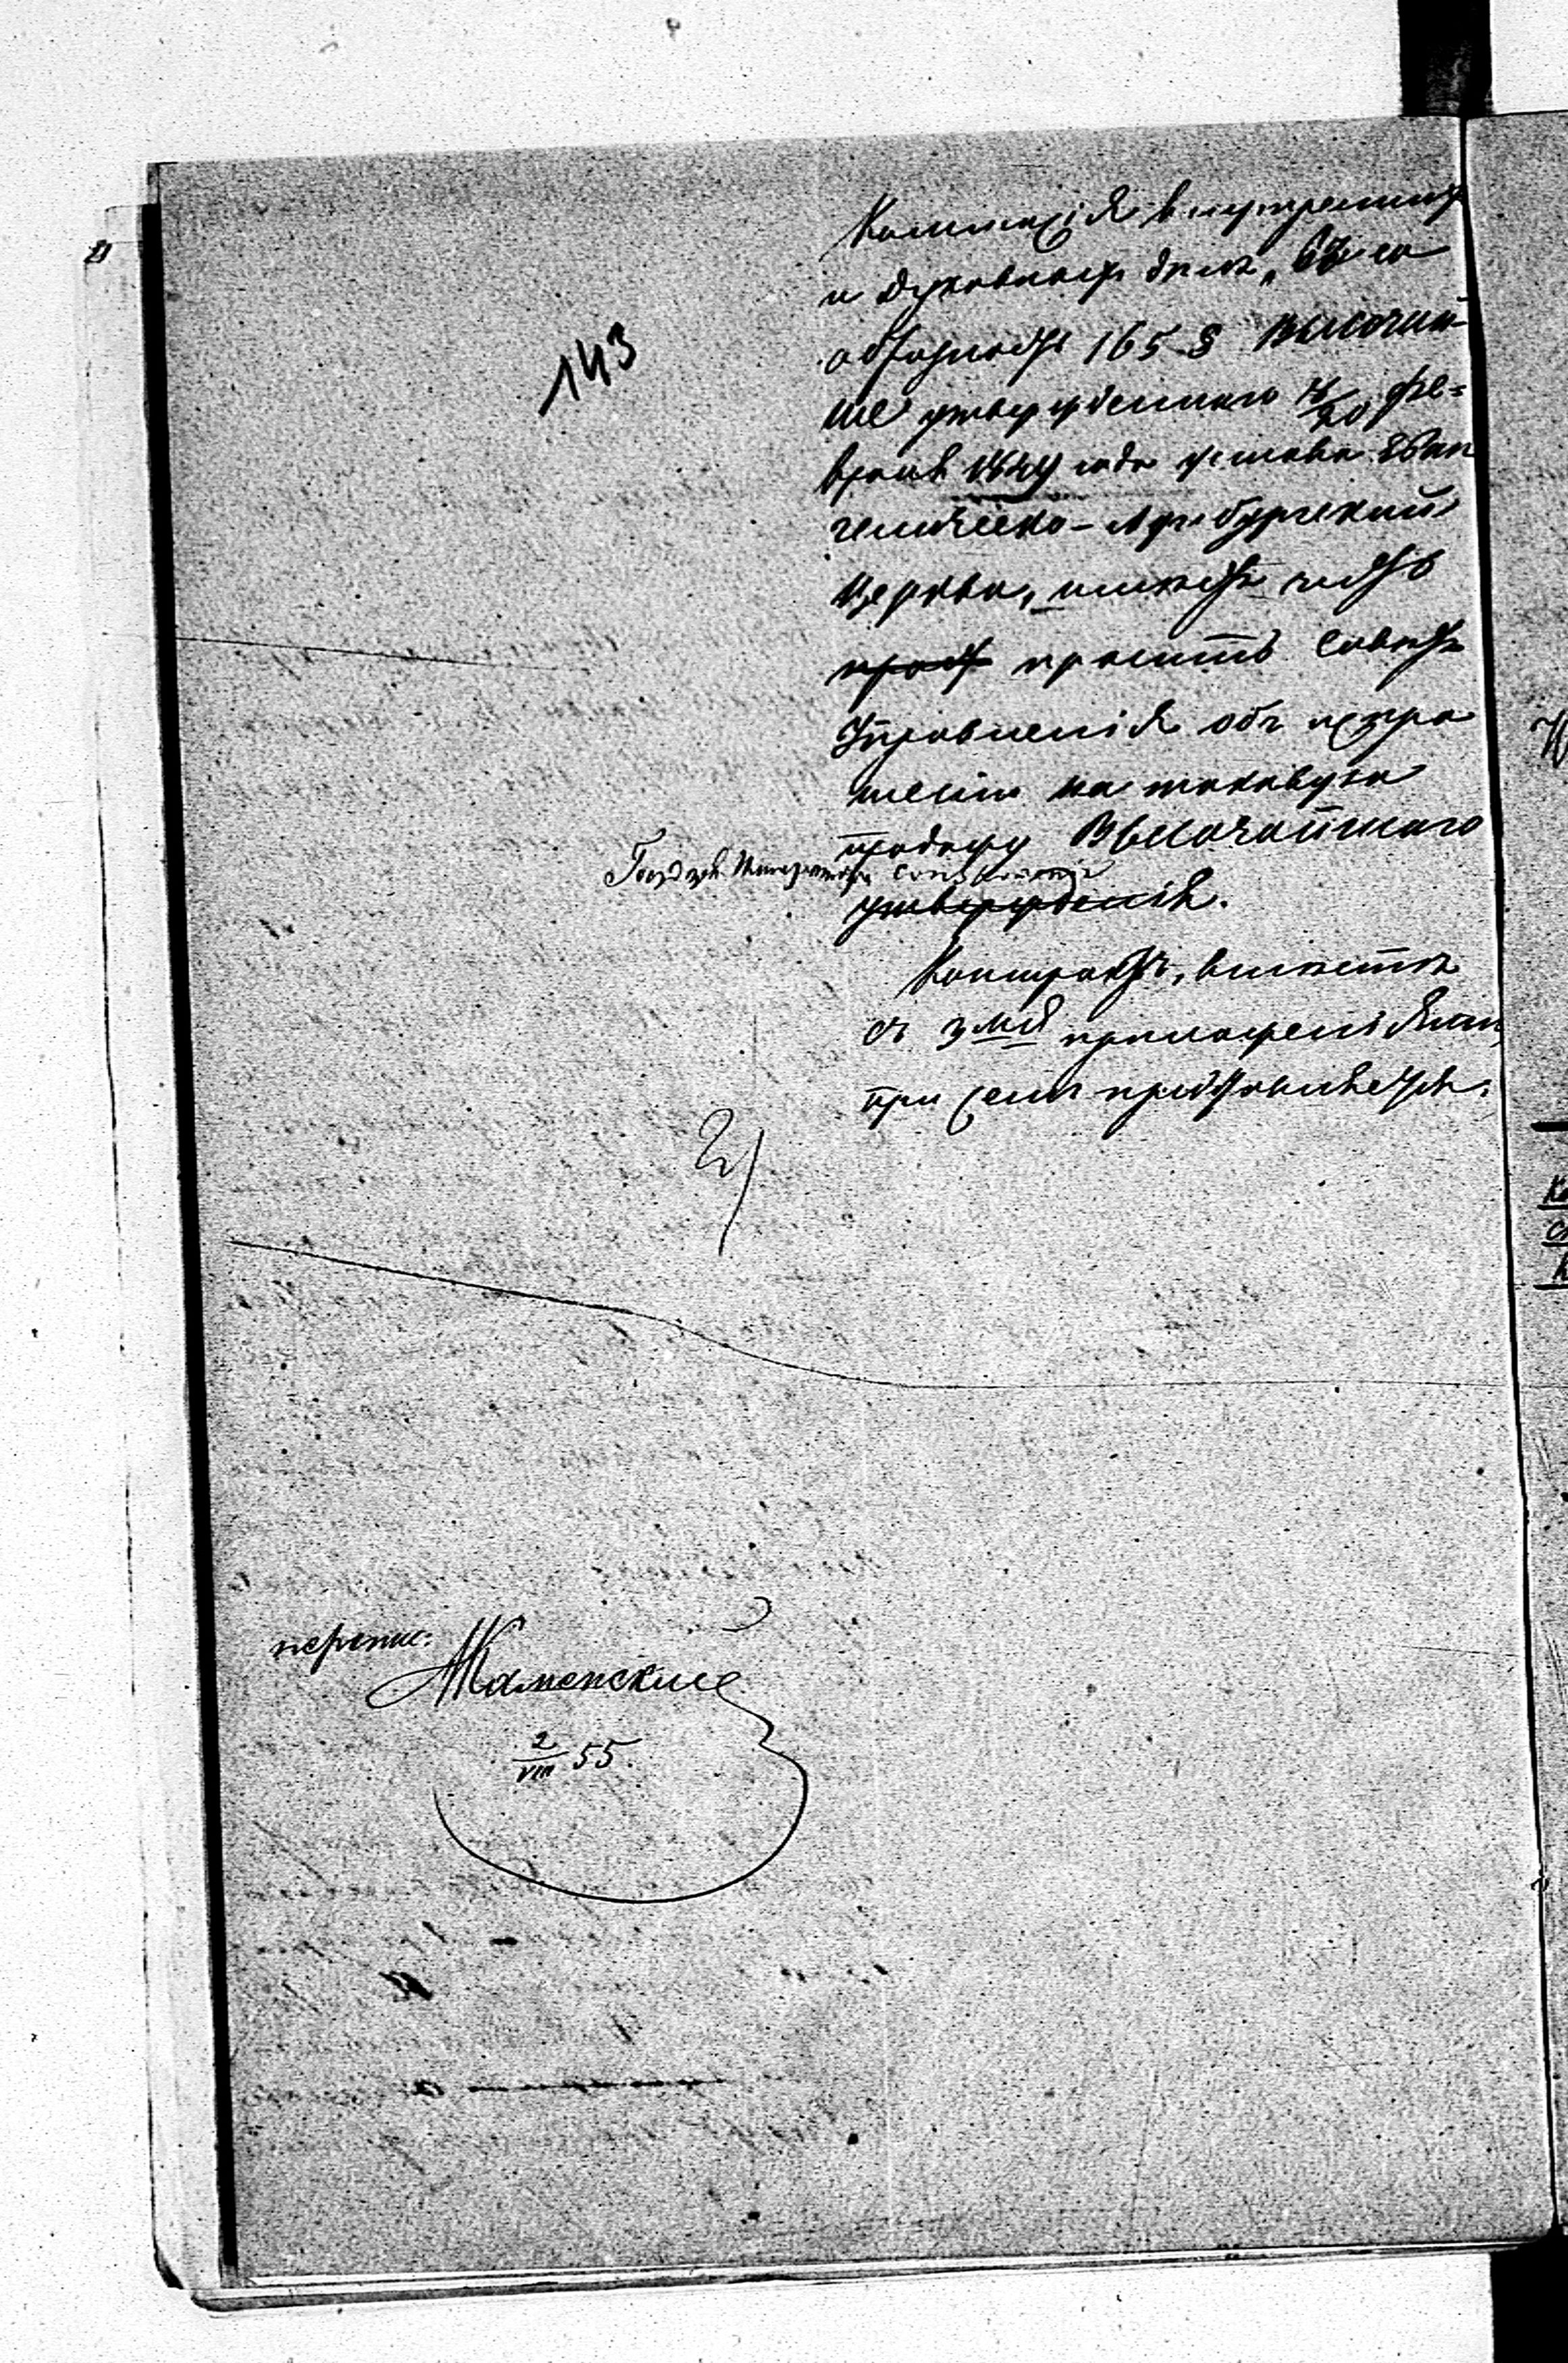 143
Коммисія внутреннихъ
и духовныхъ делъ, въ со
отвѣтств 165 § Высочай-
ше утвержденнаго 8/20 Фе=
враля 1849 года устава Еван
гелическо-Аугсбургской
Церкви, имѣетъ честь
прос просить Совѣтъ
Управленія объ испро
шеніи на таковую
продажу Высочайшаго
Государя Императора соизволенія
утвержденія.
Контрактъ, вмѣстѣ
съ 3мя приложеніями
при семъ представляется.
перепис:
Каменскій
2/VIII 55.